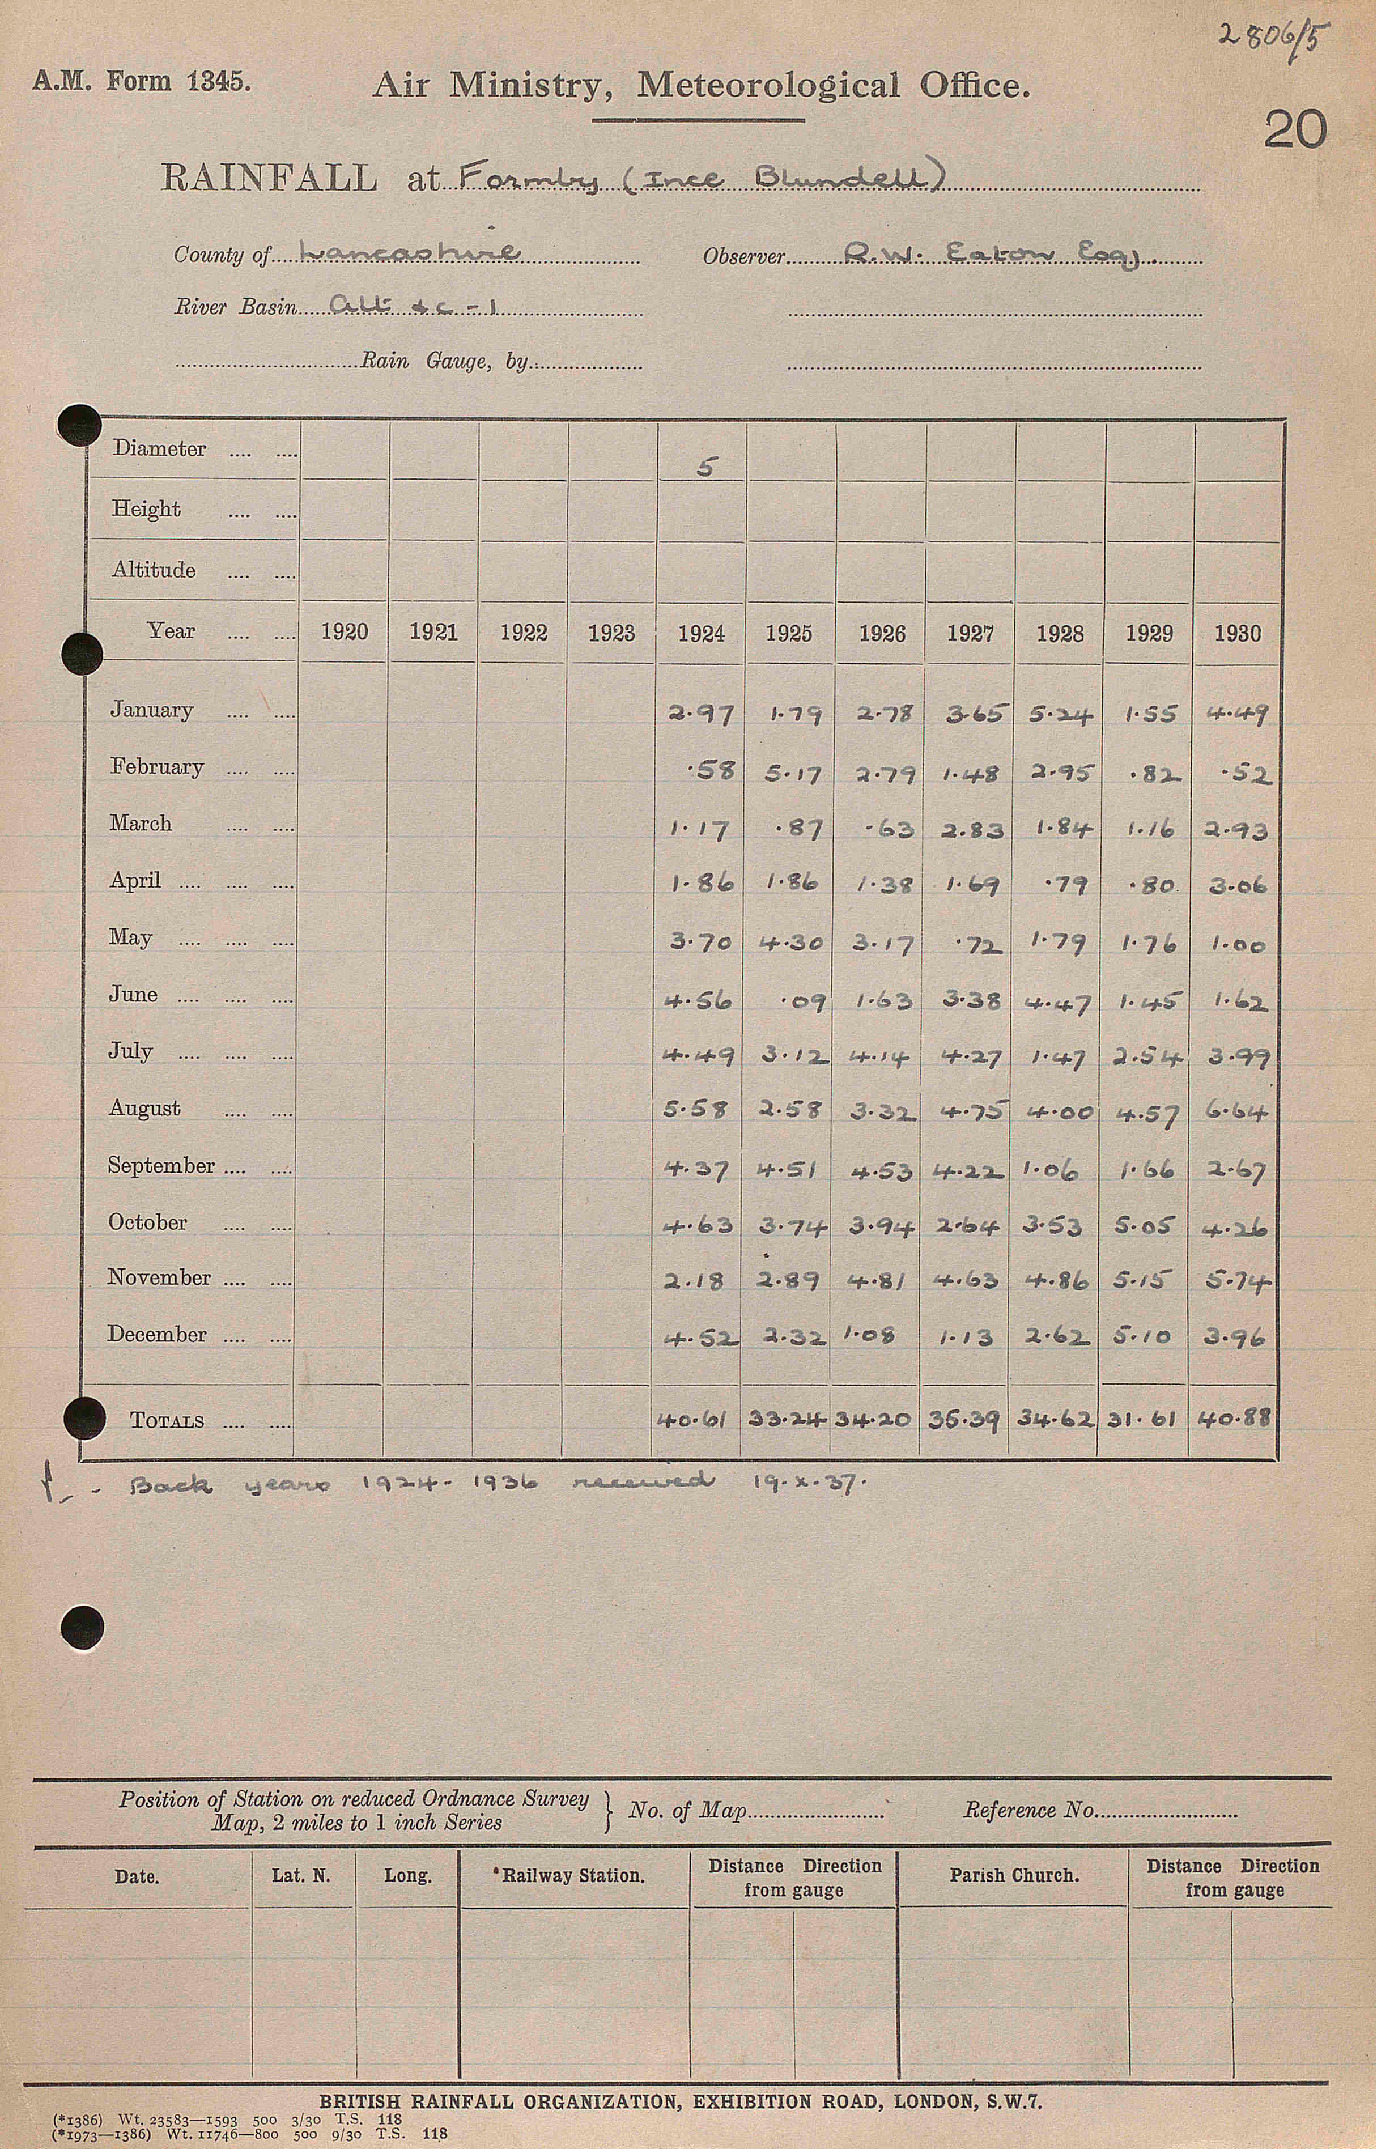 2806/5
A.M. Form 1345. Air Ministry, Meteorological Office.
20
RAINFALL at Formby (Ince Blundell)
County of Lancashire Observer R.W. Eaton Esq.
River Basin Alt &c - 1
Rain Gauge, by
Diameter .... .... 5
Height .... ....
Altitude .... ....
Year .... .... 1920 1921 1922 1923 1924 1925 1926 1927 1928 1929 1930
January .... .... 2.97 1.79 2.78 3.65 5.24 1.55 4.49
February .... .... .58 5.17 2.79 1.48 2.95 .82 .52
March .... .... 1.17 .87 .63 2.83 1.84 1.16 2.93
April .... .... .... 1.86 1.86 1.38 1.69 .79 .80 3.06
May .... .... .... 3.70 4.30 3.17 .72 1.79 1.76 1.00
June .... .... .... 4.56 .09 1.63 3.38 4.47 1.45 1.62
July .... .... .... 4.49 3.12 4.14 4.27 1.47 2.54 3.99
August .... .... 5.58 2.58 3.32 4.75 4.00 4.57 6.64
September .... .... 4.37 4.51 4.53 4.22 1.06 1.66 2.67
October .... .... 4.63 3.74 3.94 2.64 3.53 5.05 4.26
November .... .... 2.18 2.89 4.81 4.63 4.86 5.15 5.74
December .... .... 4.52 2.32 1.08 1.13 2.62 5.10 3.96
TOTALS .... .... 40.61 33.24 34.20 35.39 34.62 31.61 40.88
Back years 1924 - 1936 received 19.X.37.
Position of Station on reduced Ordnance Survey
Map, 2 miles to 1 inch Series } No. of Map Reference No.
Date. Lat. N. Long. *Railway Station. Distance Direction from gauge Parish Church. Distance Direction from gauge
BRITISH RAINFALL ORGANIZATION, EXHIBITION ROAD, LONDON, S.W.7.
(*1386) Wt. 23583—1593 500 3/30 T.S. 118
(*1973—1386) Wt. 11746—800 500 9/30 T.S. 118